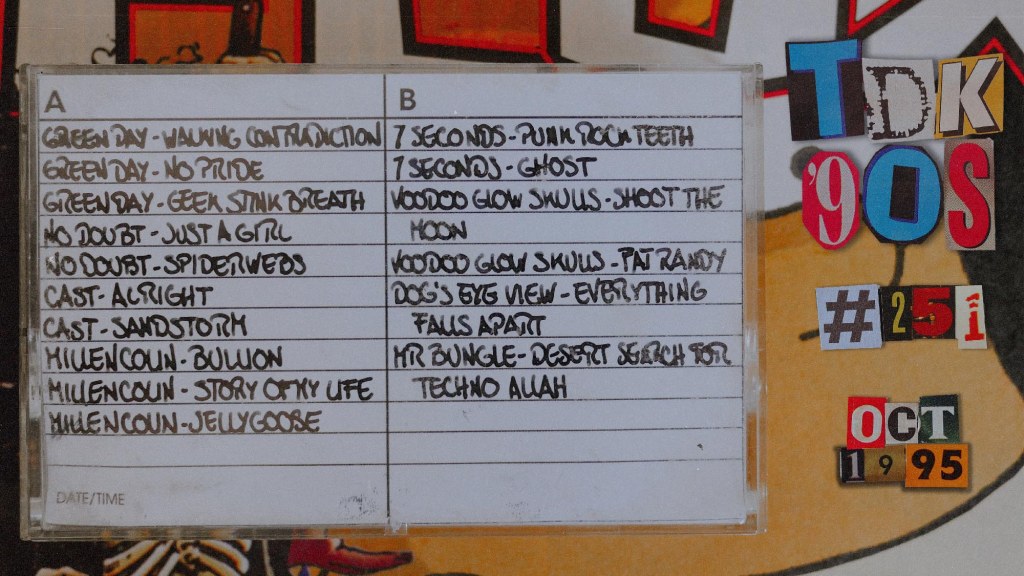 A
GREEN DAY - WALKING CONTRADICTION
GREEN DAY - NO PRIDE
GREEN DAY - GEEK STINK BREATH
NO DOUBT - JUST A GIRL
NO DOUBT - SPIDERWEBS
CAST - ALRIGHT
CAST - SANDSTORM
MILLENCOLIN - BULLION
MILLENCOLIN - STORY OF MY LIFE
MILLENCOLIN - JELLYGOOSE
DATE/TIME
B
7 SECONDS - PUNK ROCK TEETH
7 SECONDS - GHOST
VOODOO GLOW SKULLS - SHOOT THE
MOON
VOODOO GLOW SKULLS - FAT RANDY
DOG'S EYE VIEW - EVERYTHING
FALLS APART
MR BUNGLE - DESERT SEARCH FOR
TECHNO ALLAH
TDK
'90S
#251
OCT
1995